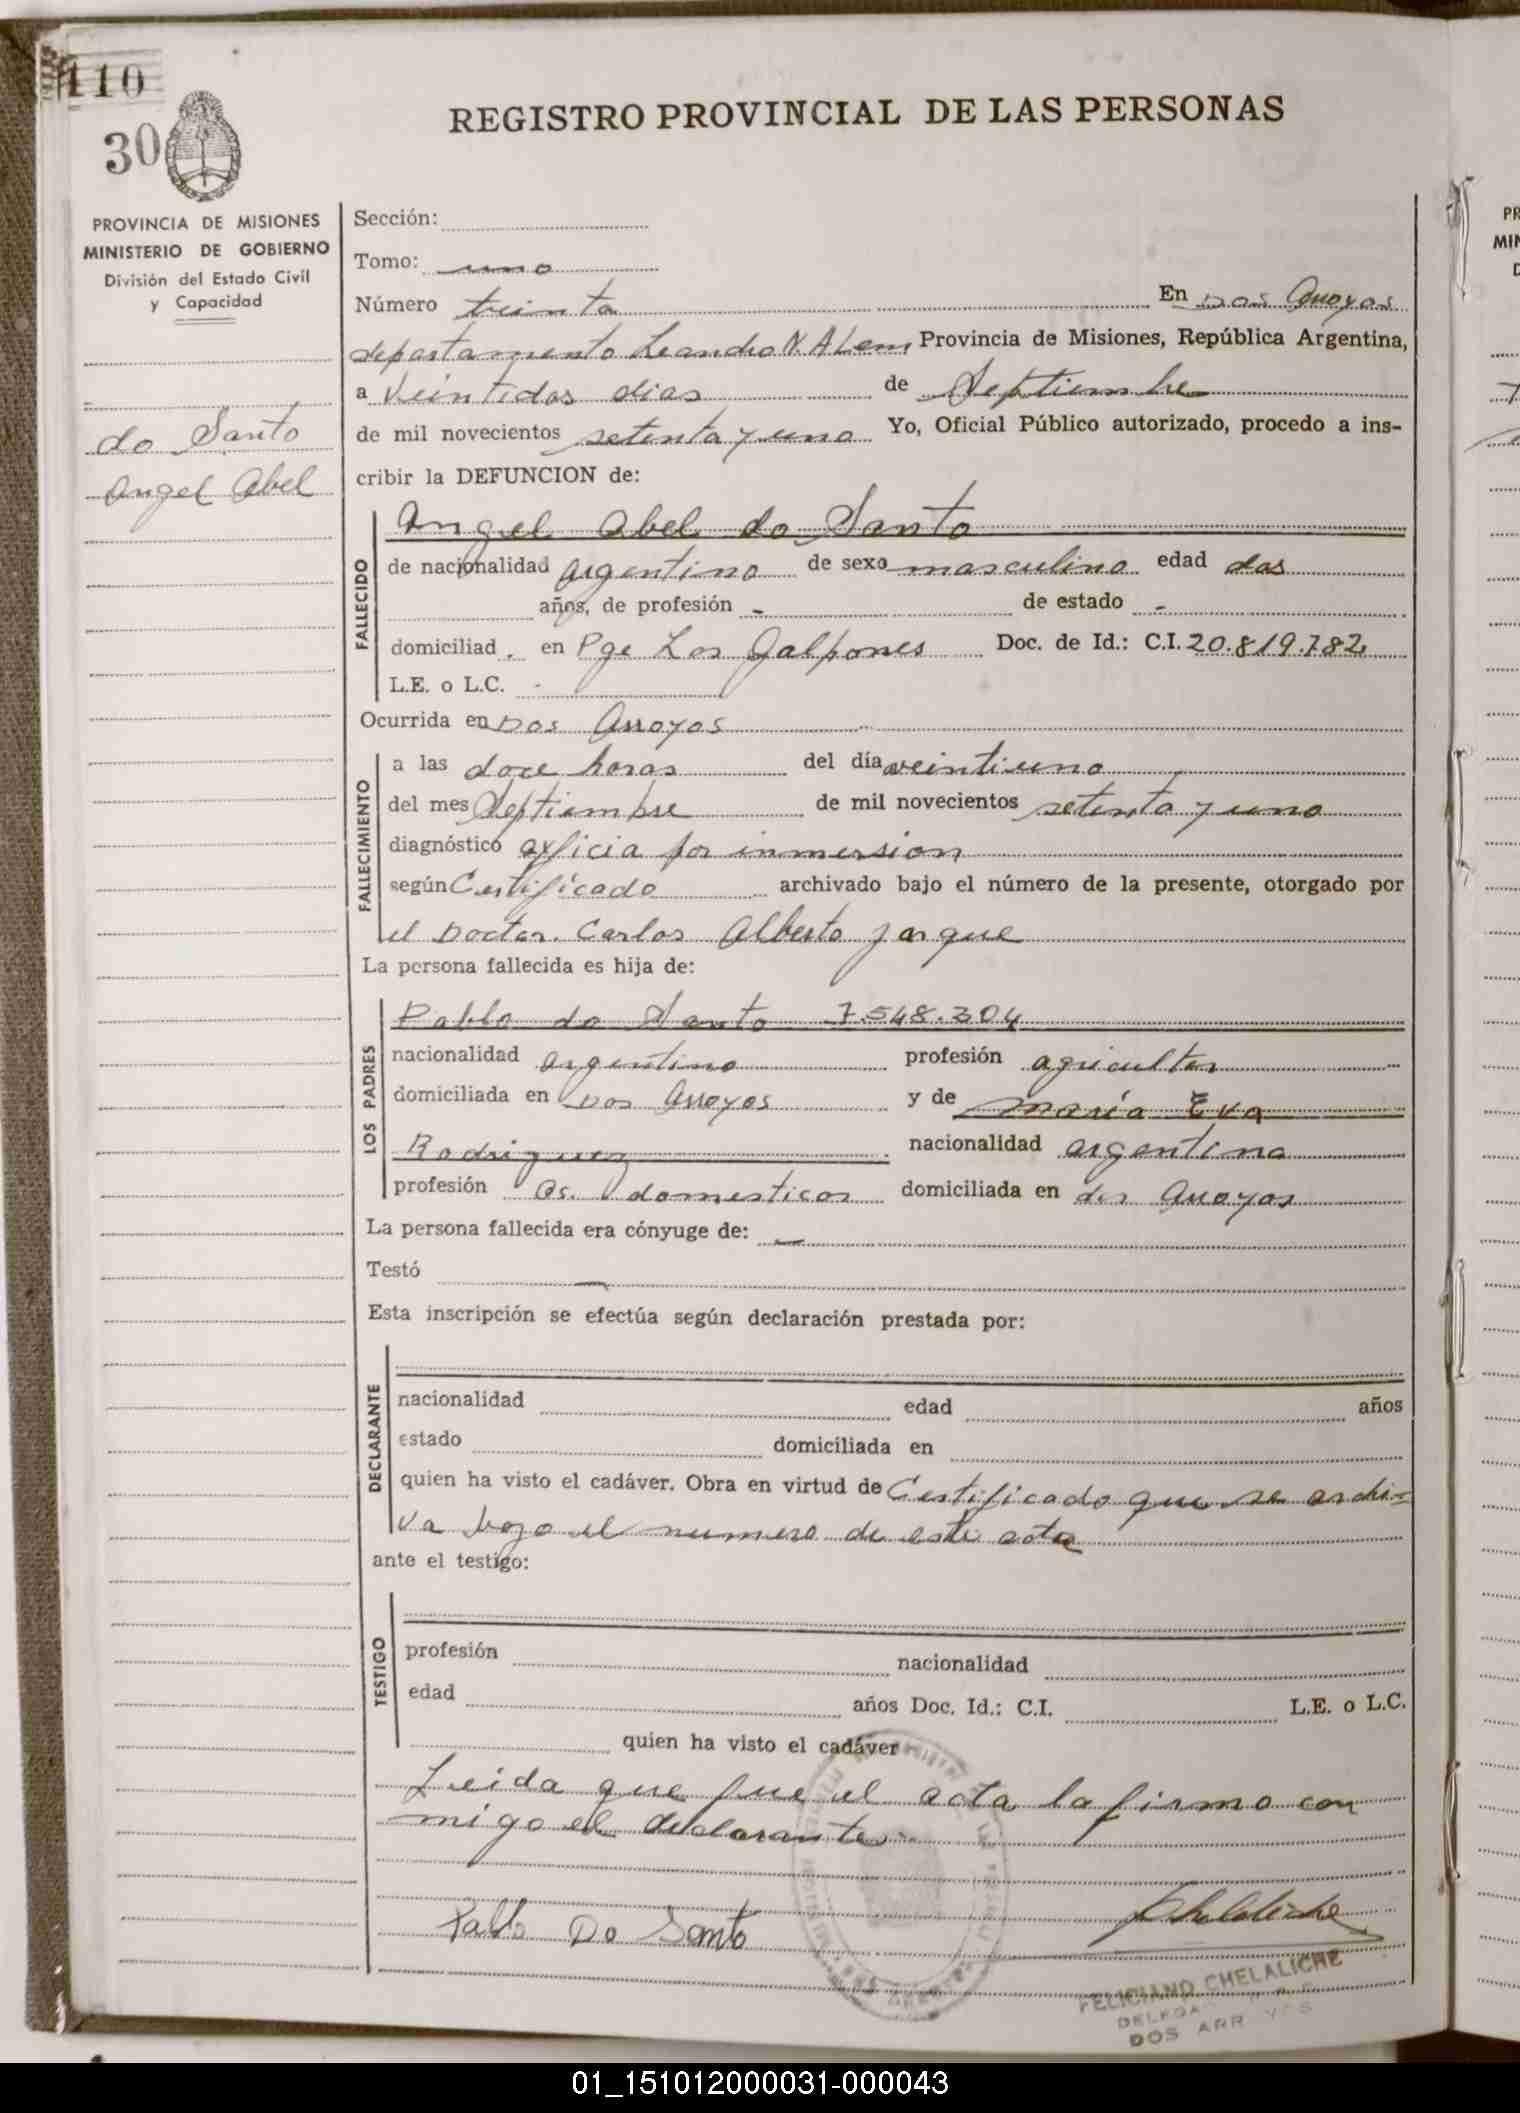 110
30
REGISTRO PROVINCIAL DE LAS PERSONAS
PROVINCIA DE MISIONES
MINISTERIO DE GOBIERNO
División del Estado Civil
y Capacidad
do Santo
Angel Abel
Sección:
Tomo: uno
Número treinta En Dos Arroyos
departamento Leandro N. ALem, Provincia de Misiones, República Argentina,
a Veintidos dias de Septiembre
de mil novecientos setenta y uno Yo, Oficial Público autorizado, procedo a ins-
cribir la DEFUNCION de:
FALLECIDO
Angel Abel do Santo
de nacionalidad argentino de sexo masculino edad dos
años, de profesión - de estado -
domiciliad . en Pge Los Galpones Doc. de Id.: C.I. 20.819.782
L.E. o L.C. -
Ocurrida en Dos Arroyos
FALLECIMIENTO
a las doce horas del día veintiuno
del mes Septiembre de mil novecientos setenta y uno
diagnóstico axficia por inmersion
según Certificado archivado bajo el número de la presente, otorgado por
el Doctor. Carlos Alberto Jarque
La persona fallecida es hija de:
LOS PADRES
Pablo do Santo 7.548.304
nacionalidad argentino profesión agricultor
domiciliada en Dos Arroyos y de María Eva
Rodriguez nacionalidad argentina
profesión Qs. domesticos domiciliada en dos Arroyos
La persona fallecida era cónyuge de: -
Testó -
Esta inscripción se efectúa según declaración prestada por:
DECLARANTE
nacionalidad edad años
estado domiciliada en
quien ha visto el cadáver. Obra en virtud de Certificado que se archi-
va bajo el numero de este acta
ante el testigo:
TESTIGO
profesión nacionalidad
edad años Doc. Id.: C.I. L.E. o L.C.
quien ha visto el cadáver
Leida que fue el acta la firmo con
migo el declarante
Pablo Do Santo
FChelaliche
FELICIANO CHELALICHE
DOS ARR YOS
01_151012000031-000043